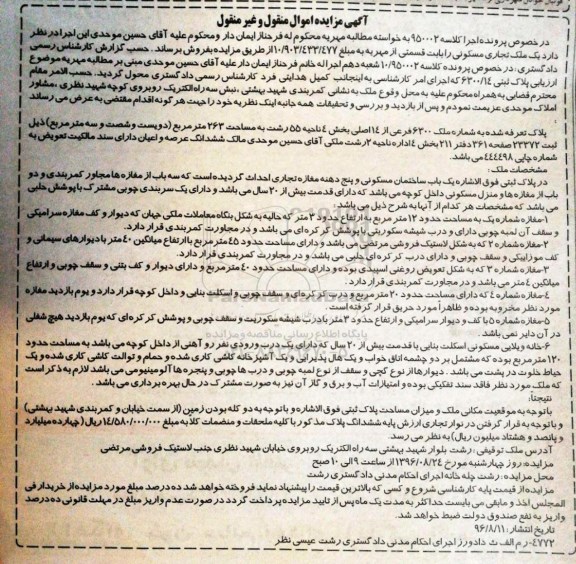 آگهی مزایده اموال منقول و غیر منقول
در خصوص پرونده اجرا کلاسه ۹۵۰۰۰۲ به خواسته مطالبه مهریه له فرحناز ایمان دار و محکوم علیه آقای حسین موحدی این اجرا در نظر
دارد یک ملک تجاری مسکونی را بابت قسمتی از مهریه به مبلغ ۱۰/۹۰۳/۴۳۳/۴۷۷ از طریق مزایده بفروش برساند. حسب گزارش کارشناس رسمی
دادگستری، در خصوص پرونده کلاسه ۱۰/۹۵۰۰۰۲ شعبه دهم اجرا له خانم فرحناز ایمان دار علیه آقای حسین موحدی مبنی بر مطالبه مهریه موضوع
ارزیابی پلاک ثبتی ۶۳۰۰/۱۴ که اجرای امر کارشناسی به اینجانب کمیل هدایتی فرد کارشناس رسمی دادگستری محول گردید. حسب الامر مقام
محترم قضایی به همراه محکوم علیه به محل وقوع ملک به نشانی کمربندی شهید بهشتی، نبش سه راه الکتریک روبروی کوچه شهید نظری، مشاور
املاک موحدی عزیمت نمودم و پس از بازدید و بررسی و تحقیقات همه جانبه اینک نظریه خود را جهت هر گونه اقدام مقتضی به عرض می رساند
پلاک تعرفه شده به شماره ملک ۶۳۰۰ فرعی از ۱۴ اصلی بخش ۴ ناحیه ۵۵ رشت به مساحت ۲۶۳ متر مربع (دویست و شصت و سه متر مربع) ذیل
ثبت ۲۳۳۷۲ صفحه ۳۶۱ دفتر ۲۱۱ بخش ۴ اداره ناحیه ۲ رشت ملکی آقای حسین موحدی مالک ششدانگ عرصه و اعیان دارای سند مالکیت تعویض به
شماره چاپی ۴۴۴۴۹۸ می باشد.
مشخصات ملک:
در پلاک ثبتی فوق الاشاره یک باب ساختمان مسکونی و پنج دهنه مغازه تجاری احداث گردیده است که سه باب از مغازه ها مجاور کمربندی و دو
باب از مغازه ها و منزل مسکونی داخل کوچه می باشد که دارای قدمت بیش از ۲۰ سال می باشد و دارای یک سربندی چوبی مشترک با پوشش حلبی
می باشد که مشخصات هر کدام از آنها به شرح ذیل می باشد.
۱-مغازه شماره یک به مساحت حدود ۱۲ متر مربع به ارتفاع حدود ۳ متر که حالیه به شکل بنگاه معاملات ملکی جهان که دیوار و کف مغازه سرامیکی
و سقف آن لمبه چوبی دارای و درب شیشه سکوریتی با پوشش کرکره ای می باشد و در مجاورت کمربندی قرار دارد.
۲-مغازه شماره ۲ که به شکل لاستیک فروشی مرتضی می باشد و دارای مساحت حدود ۴۵ متر مربع با ارتفاع میانگین ۴۰ متر با دیوارهای سیمانی و
کف موزاییکی و سقف چوبی و دارای درب کرکره ای حلبی می باشد و در مجاورت کمربندی قرار دارد.
۳-مغازه شماره ۳ که به شکل تعویض روغنی اسپیدی بوده و دارای مساحت حدود ۴۰ متر مربع و دارای دیوار و کف بتنی و سقف چوبی و ارتفاع
میانگین ۴ متر می باشد و در مجاورت کمربندی قرار دارد.
۴-مغازه شماره ۴ که دارای مساحت حدود ۲۰ متر مربع و درب کرکره ای و سقف چوبی و اسکلت بنایی و داخل کوچه قرار دارد و یوم بازدید مغازه
مورد نظر مخروبه بوده و ظاهرا مورد حریق قرار گرفته است.
۵-مغازه شماره ۵ با کف و دیوار سرامیکی و ارتفاع حدود ۳ متر با درب شیشه سکوریت و سقف چوبی و پوشش کرکره ای که یوم بازدید هیچ شغلی
در آن دایر نمی باشد.
۶-خانه ویلایی مسکونی اسکلت بنایی با قدمت بیش از ۲۰ سال که دارای یک درب ورودی نفر رو آهنی از داخل کوچه می باشد به مساحت حدود
۱۲۰ متر مربع بوده که مشتمل بر دو چشمه اتاق خواب و یک هال پذیرایی و یک آشپزخانه کاشی کاری شده و حمام و توالت کاشی کاری شده و یک
حیاط خلوت در پشت می باشد. دیوارها از نوع گچی و سقف از نوع لمبه چوبی و درب ها چوبی و پنجره ها آلومینیومی می باشد لازم به ذکر است
که ملک مورد نظر فاقد سند تفکیکی بوده و امتیازات آب و برق و گاز آن نیز به صورت مشترک در حال بهره برداری می باشد.
نتیجتا:
با توجه به موقعیت مکانی ملک و میزان مساحت پلاک ثبتی فوق الاشاره و با توجه به دو کله بودن زمین (از سمت خیابان و کمربندی شهید بهشتی)
و با توجه به قرار گرفتن در نوار تجاری ارزش پایه ششدانگ پلاک مذکور با کلیه ملحقات و منضمات کلا به مبلغ ۱۴/۵۸۰/۰۰۰/۰۰۰ ریال (چهارده میلیارد
و پانصد و هشتاد میلیون ریال) به نظر می رسد.
آدرس ملک توقیفی: رشت بلوار شهید بهشتی سه راه الکتریک روبروی خیابان شهید نظری جنب لاستیک فروشی مرتضی
مزایده: روز چهارشنبه مورخ ۱۳۹۶/۰۸/۲۴ از ساعت ۹ الی ۱۰ صبح
محل مزایده: رشت چله خانه اجرای احکام مدنی دادگستری رشت
مزایده از قیمت پایه کارشناسی شروع و کسی که بالاترین قیمت را پیشنهاد نماید فروخته خواهد شد ده درصد مبلغ مورد مزایده از خریدار فی
المجلس اخذ و مابقی می بایست حداکثر به مدت یک ماه پس از تایید مزایده پرداخت گردد در صورت عدم واریز مبلغ در مهلت قانونی ده درصد
واریز به نفع صندوق دولت ضبط خواهد شد.
تاریخ انتشار: ۹۶/۸/۱۱
۴۷۷۲-رم الف ث دادورز اجرای احکام مدنی دادگستری رشت عیسی نظر
پایگاه اطلاع رسانی مناقصه و مزایده